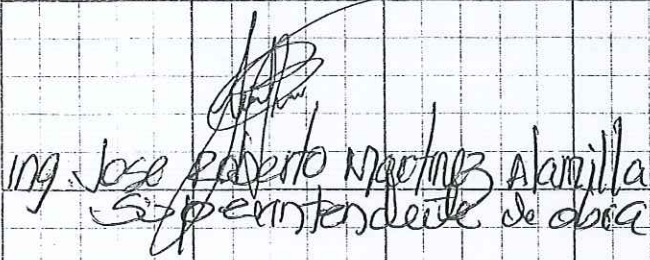 Ing. Jose Roberto Martinez Alamilla
Superintendente de obra